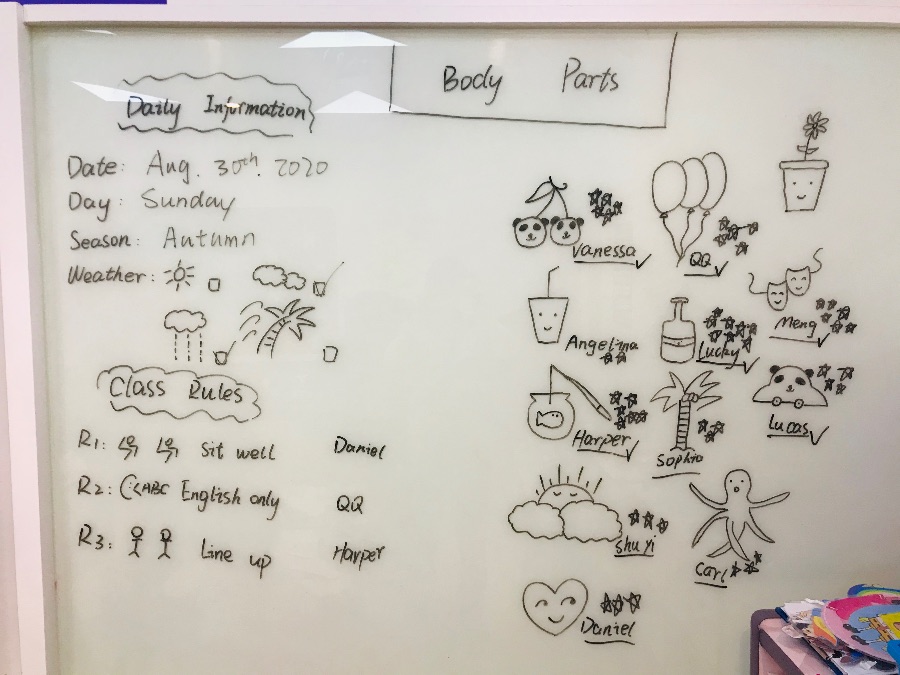 Body Parts
Daily Information
Date: Aug. 30th. 2020
Day: Sunday
Season: Autumn
Weather:
Class Rules
R1: Sit well Daniel
R2: ABC English only QQ
R3: Line up Harper
Vanessa
QQ
Angelina
Lucky
Meng
Harper
Sophia
Lucas
Shu Yi
Carl
Daniel